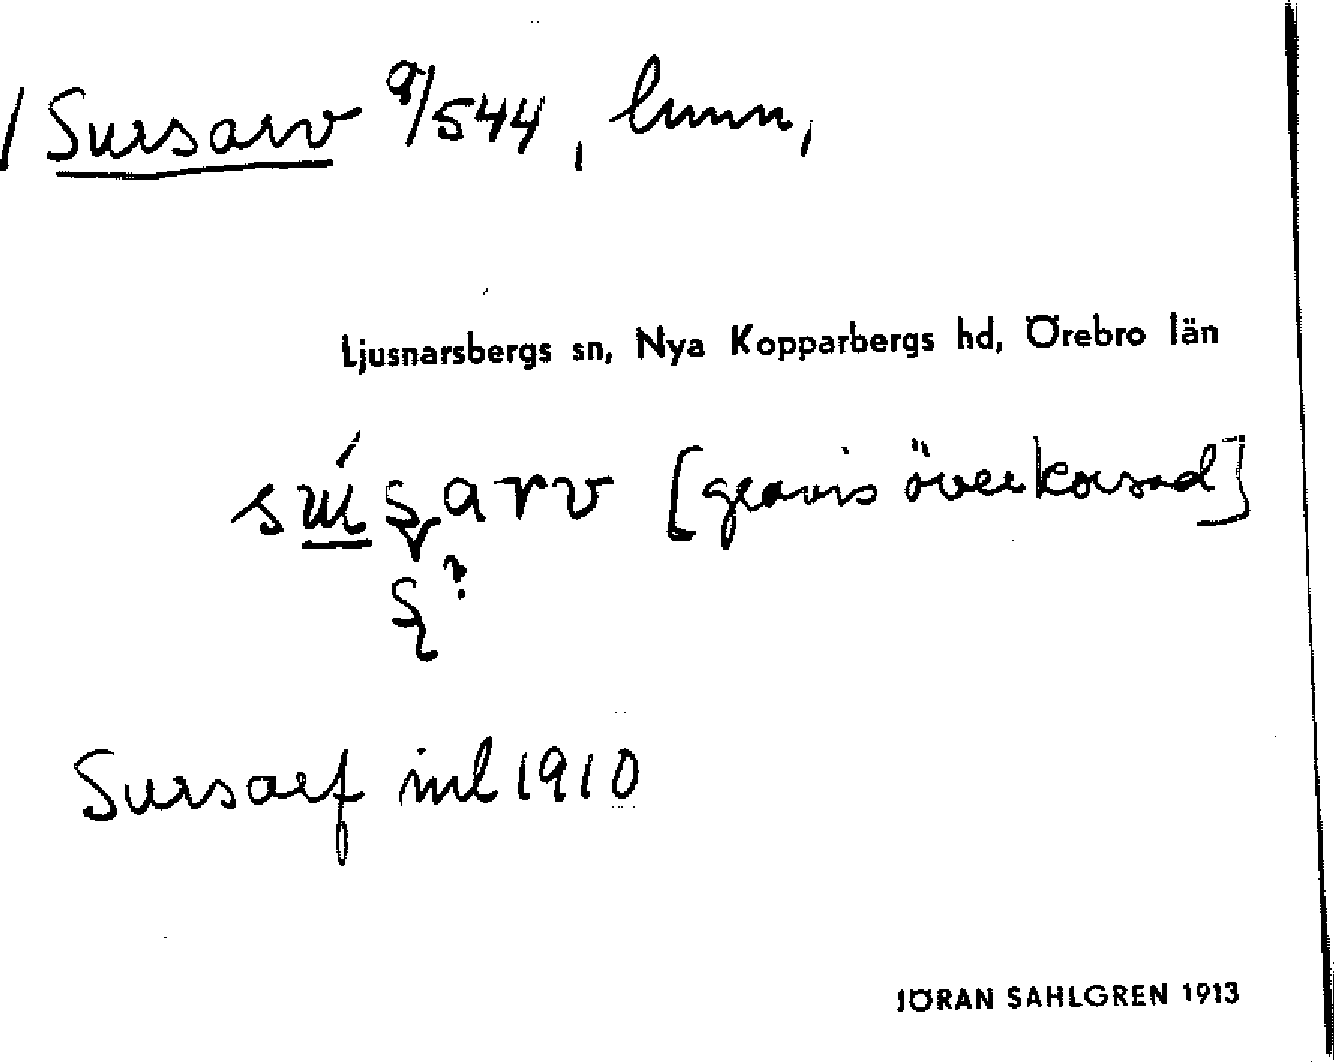 / Sursarv 9/544, hmn,
Ljusnarsbergs sn, Nya Kopparbergs hd, Örebro län
[gravis överkorsad]
Sursarf inl 1910
JÖRAN SAHLGREN 1913